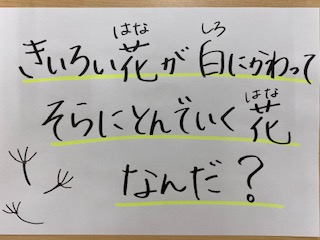 きいろい花が白にかわって
そらにとんでいく花
なんだ?